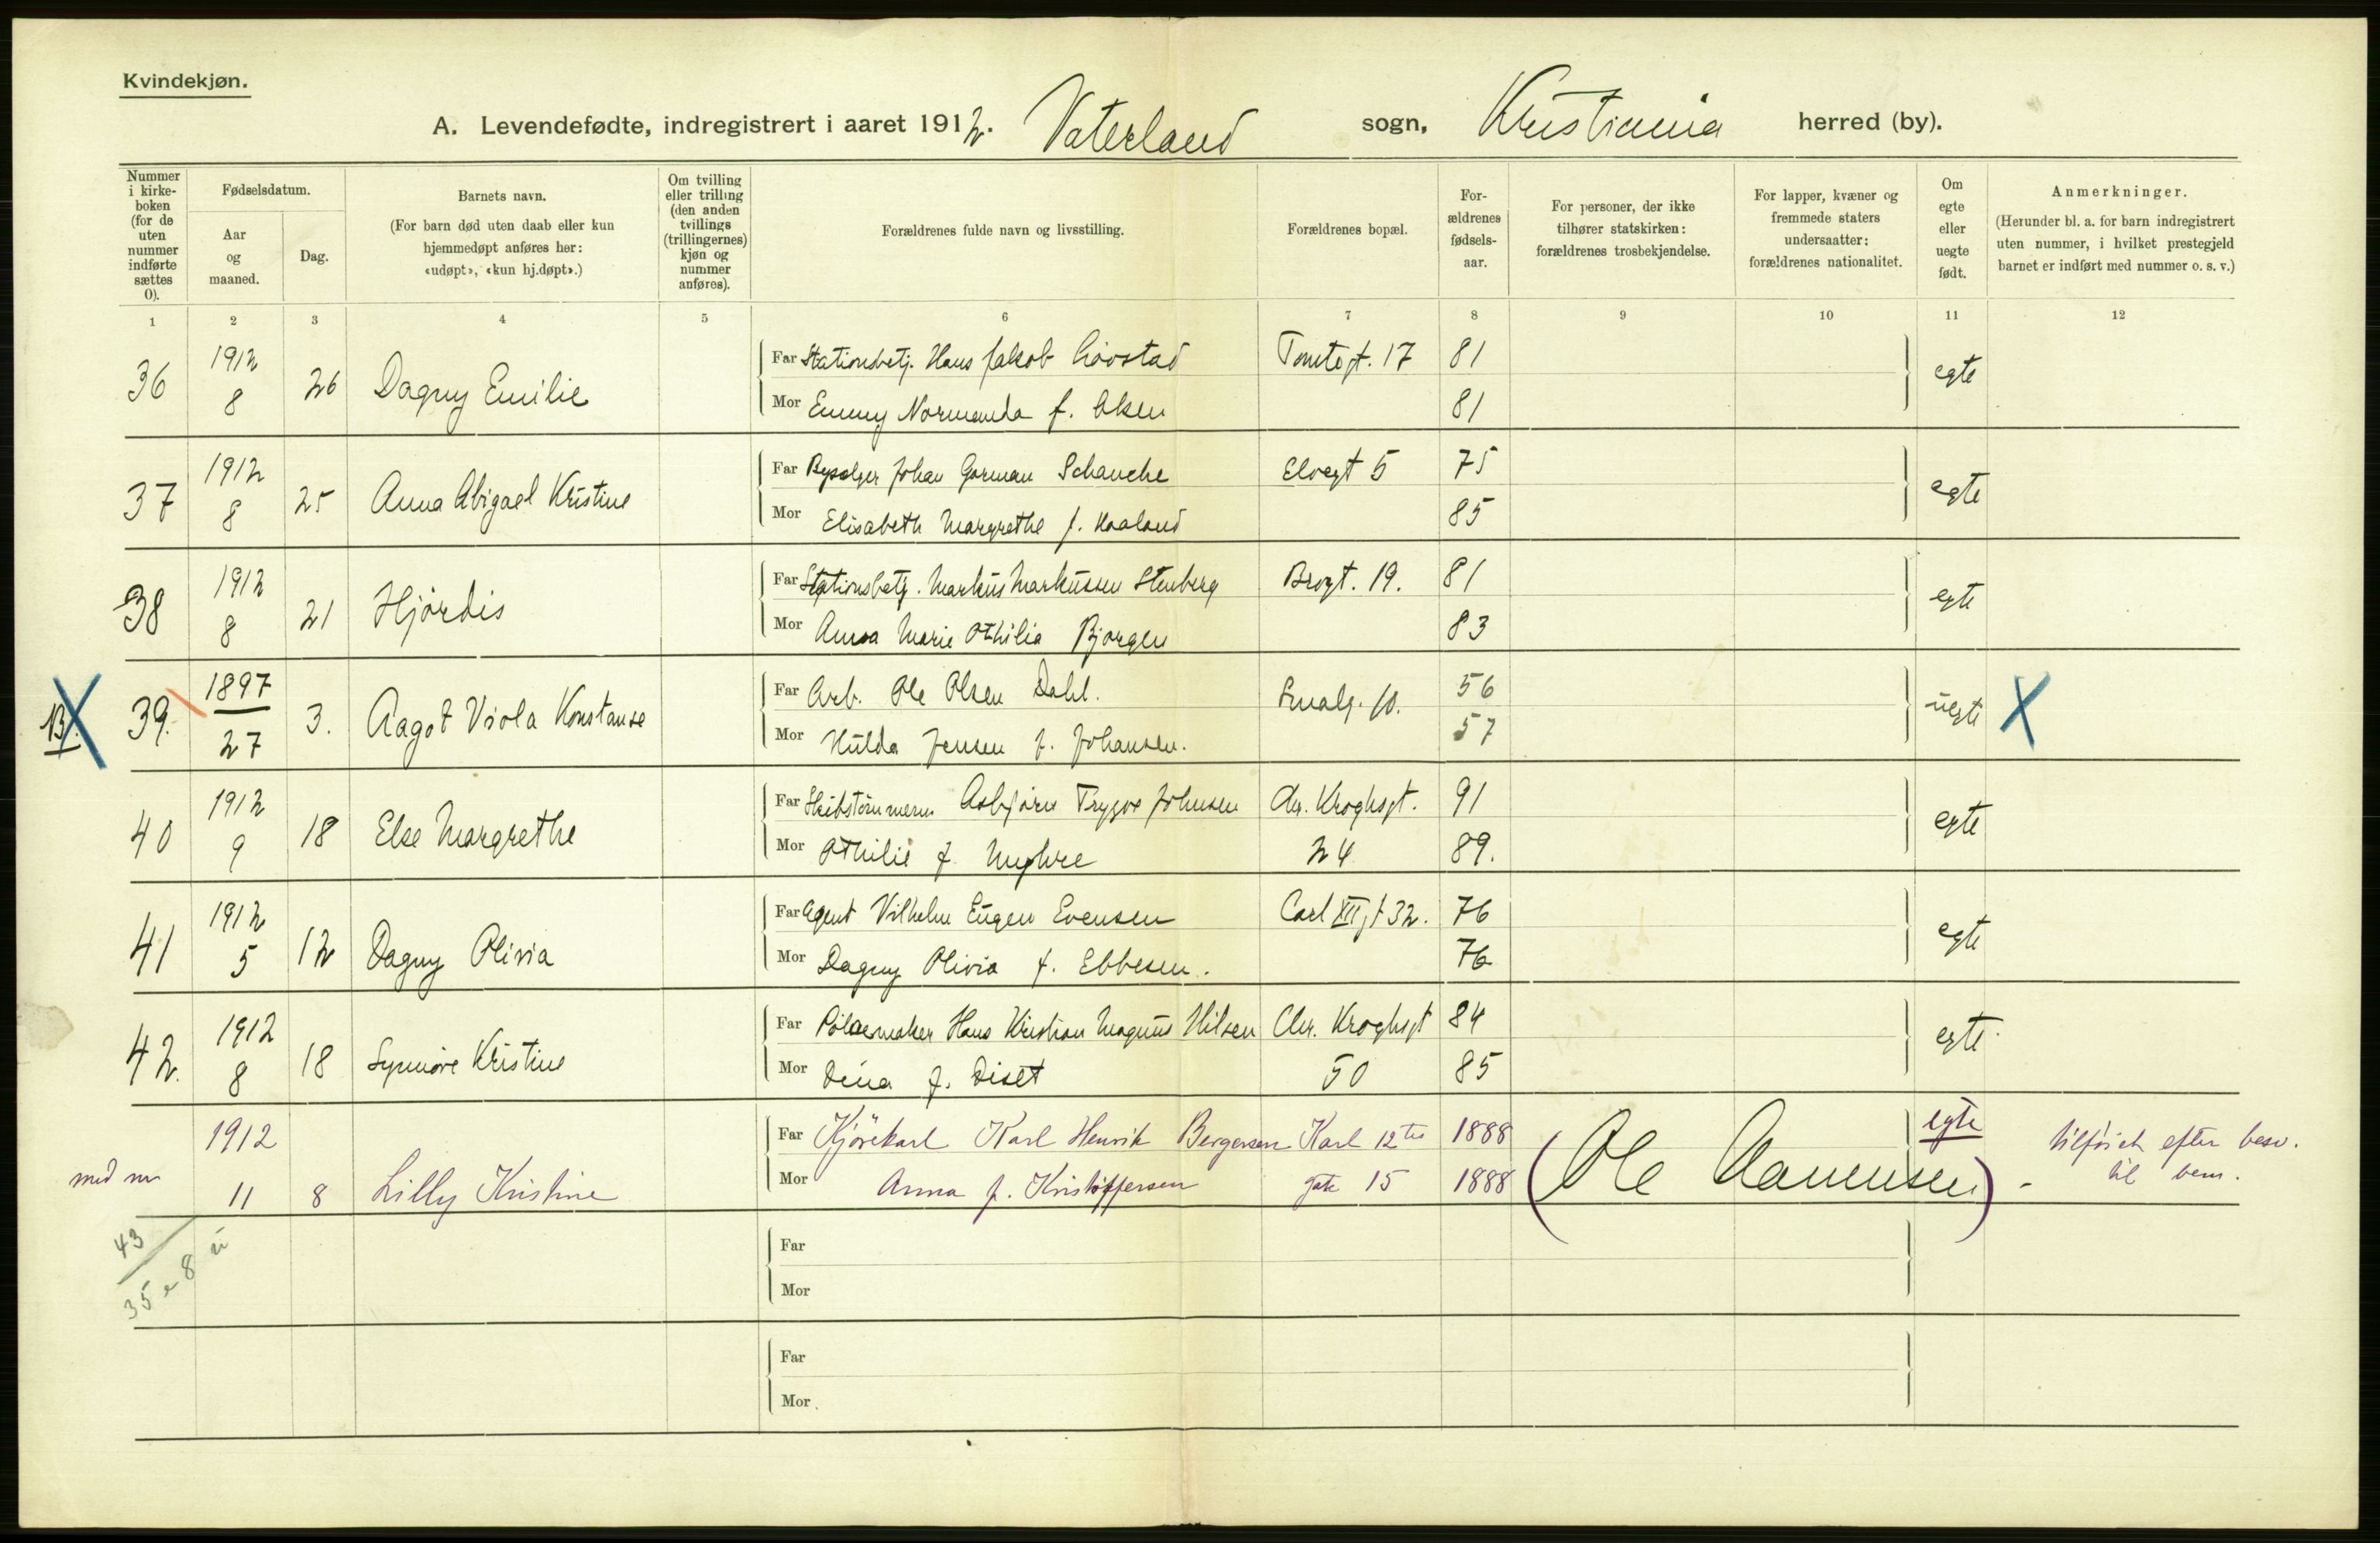 Kvindekjøn.
A. Levendefødte, indregistrert i aaret 1912. Vaterland sogn, Kristiania herred (by).
Nummer i kirke-boken (for de uten nummer indførte sættes 0).
Fødselsdatum.
Aar og maaned.
Dag.
Barnets navn.
(For barn død uten daab eller kun hjemmedøpt anføres her: «udøpt», «kun hj.døpt».)
Om tvilling eller trilling (den anden tvillings (trillingernes) kjøn og nummer anføres).
Forældrenes fulde navn og livsstilling.
Forældrenes bopæl.
For-ældrenes fødsels-aar.
For personer, der ikke tilhører statskirken: forældrenes trosbekjendelse.
For lapper, kvæner og fremmede staters undersaatter: forældrenes nationalitet.
Om egte eller uegte født.
Anmerkninger.
(Herunder bl. a. for barn indregistrert uten nummer, i hvilket prestegjeld barnet er indført med nummer o. s. v.)
1 2 3 4 5 6 7 8 9 10 11 12
36 1912 8 26 Dagny Emilie
Far Stationsbetj. Hans Jakob Løvstad Tomtegt. 17 81 egte
Mor Emmy Normanda f. Olsen 81
37 1912 8 25 Anna Abigael Kristine
Far Johan Gorman Schanche Elvegt 5 75 egte
Mor Elisabeth Margrethe f. Haaland 85
38 1912 8 21 Hjørdis
Far Stationsbetj. Markus Markussen Stenberg Brogt. 19. 81 egte
Mor Anna Marie Othilia Bjørgen 83
39. 1897 27 3. Aagot Viola Konstanse
Far Arb. Ole Olsen Dahl. Smalg. 10. 56 uegte X
Mor Hulda Jensen f. Johansen. 57
40 1912 9 18 Else Margrethe
Far Skibstømmerm. Asbjørn Trygve Johnsen Chr. Kroghsgt. 91 egte
Mor Othilie f. 24 89.
41 1912 5 12 Dagny Olivia
Far Agent Vilhelm Eugen Evensen Carl XII gt 32. 76 egte
Mor Dagny Olivia f. Ebbesen. 76
42. 1912 8 18 Synnøve Kristine
Far Pølsemaker Hans Kristian Magnus Nilsen Chr. Kroghsgt 84 egte
Mor Dina f. Diset 50 85
med nr 1912 11 8 Lilly Kristine
Far Kjørekarl Karl Henrik Bergersen Karl 12tes 1888 egte tilføiet efter besv.
Mor Anna f. Kristoffersen gate 15 1888 (Ole Aamensen) - til bem.
43
35 e 8 u
Far
Mor
Far
Mor